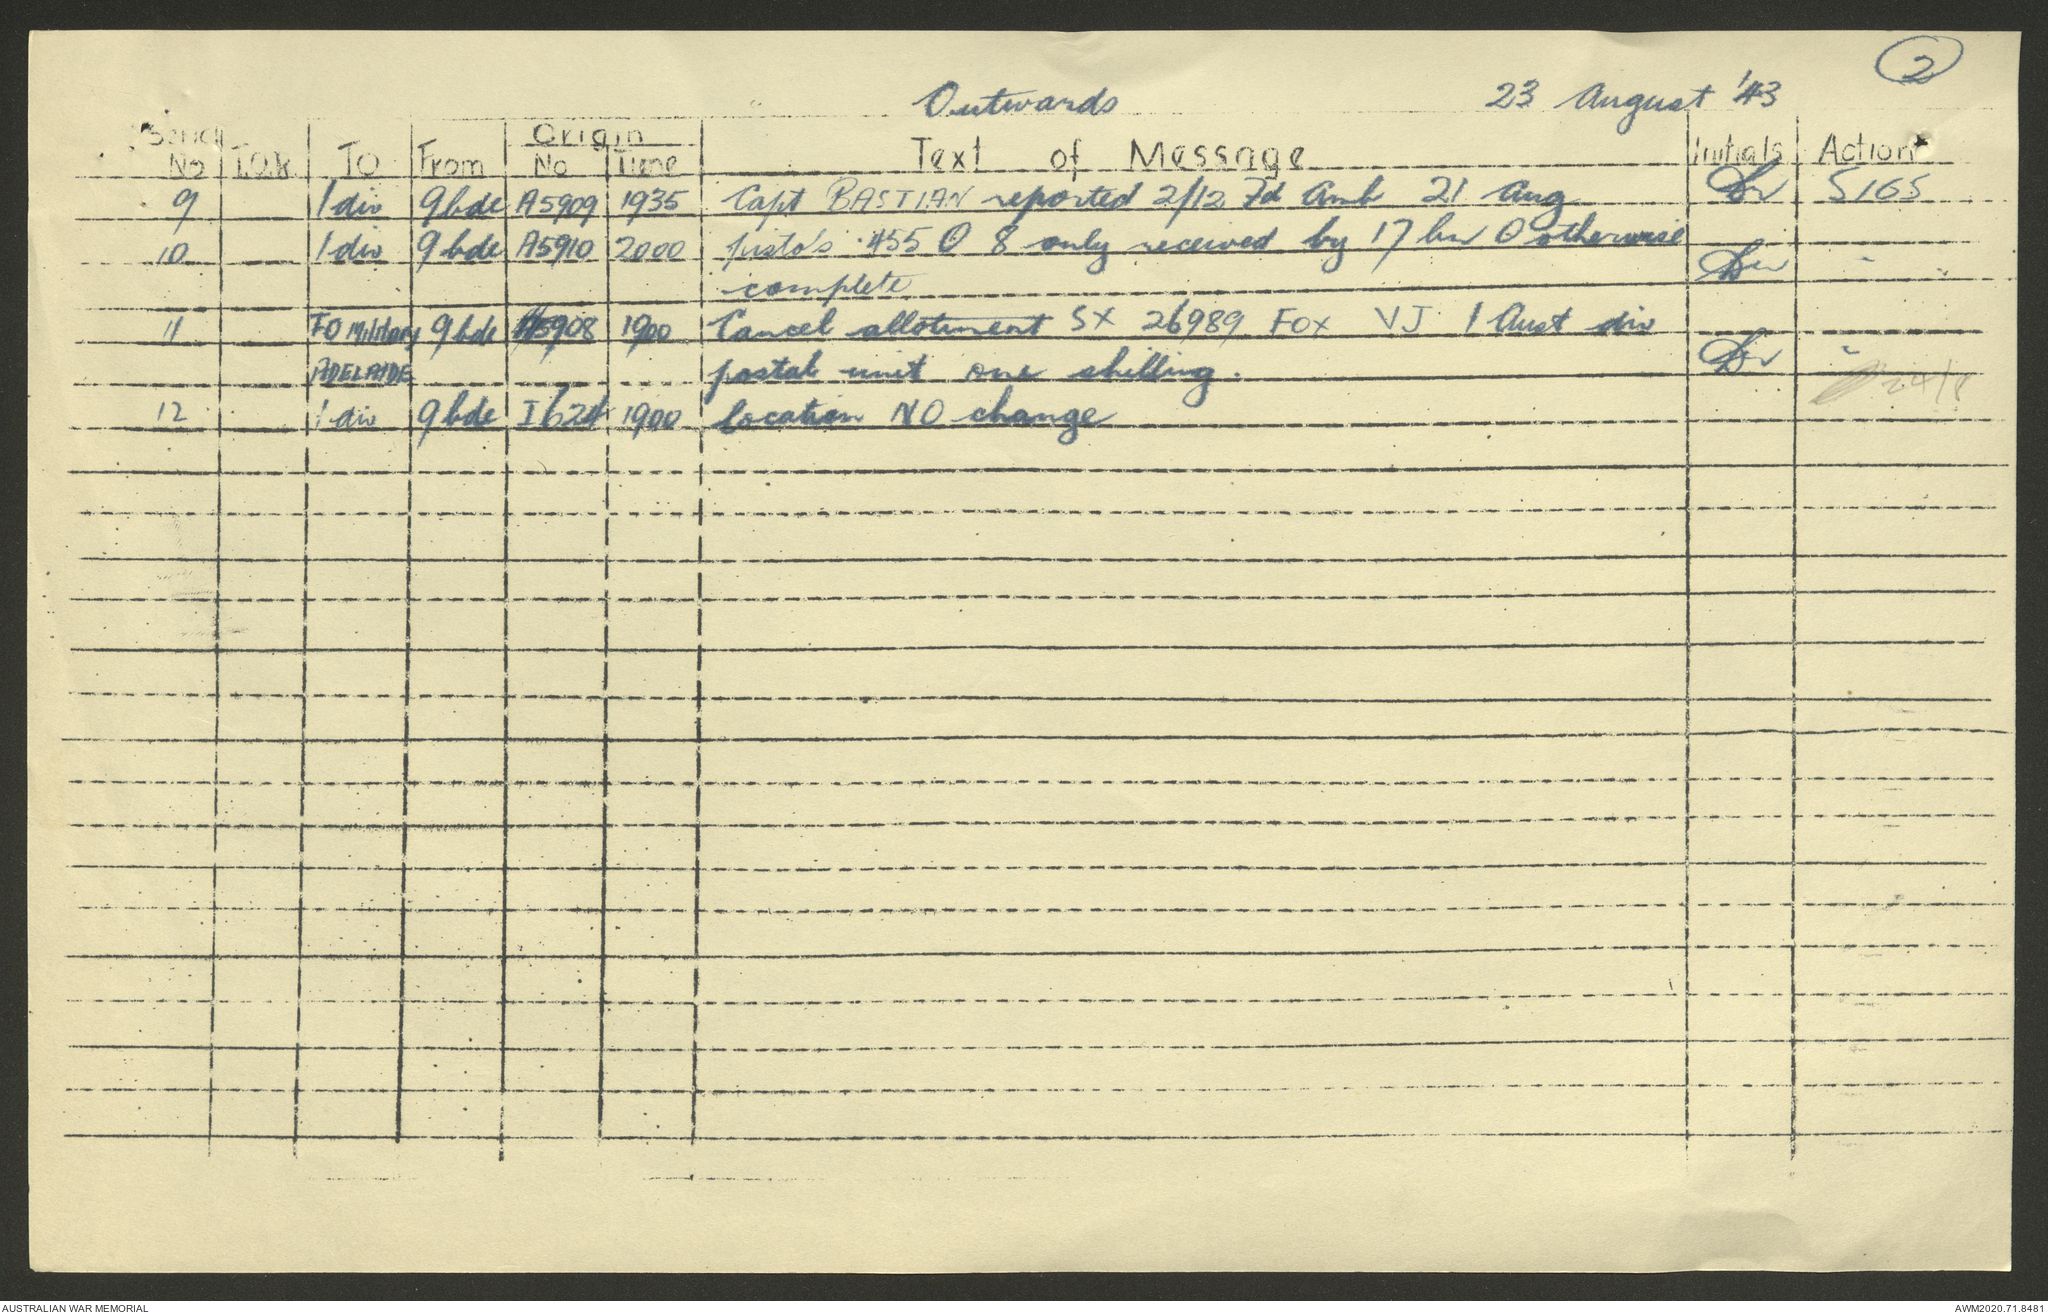 2
Outwards 23 August '43
Serial Origin
No T.O.R TO From No Time Text of Message Initials Action
9 1 div 9 bde A5909 1935 Capt BASTIAN reported 2/12 Fd Amb 21 Aug 5165
10 1 div 9 bde A5910 2000 pistols .455 O 8 only received by 17 bn O otherwise
complete "
11 FO Military 9 bde A5908 1900 Cancel allotment SX 26989 FOX VJ 1 Aust div
ADELAIDE postal unit one shilling. "
24/8
12 1 div 9 bde I624 1900 location NO change
AUSTRALIAN WAR MEMORIAL AWM2020.71.8481